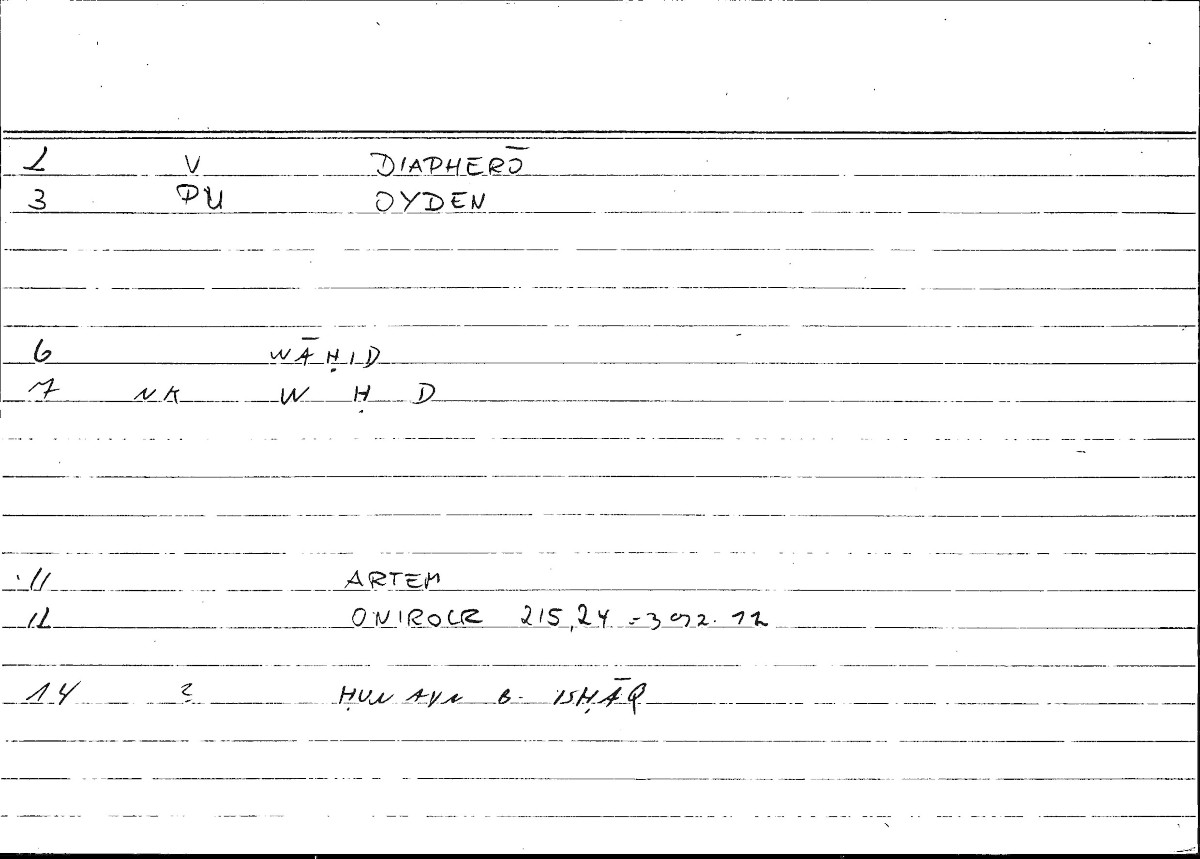 2 V DIAPHERŌ
3 PU OYDEN
6 WĀḤID
7 NK W Ḥ D
11 ARTEM
12 ONIROCR 215,24 = 392.12
14 2 ḤUNAYN B. ISḤĀQ